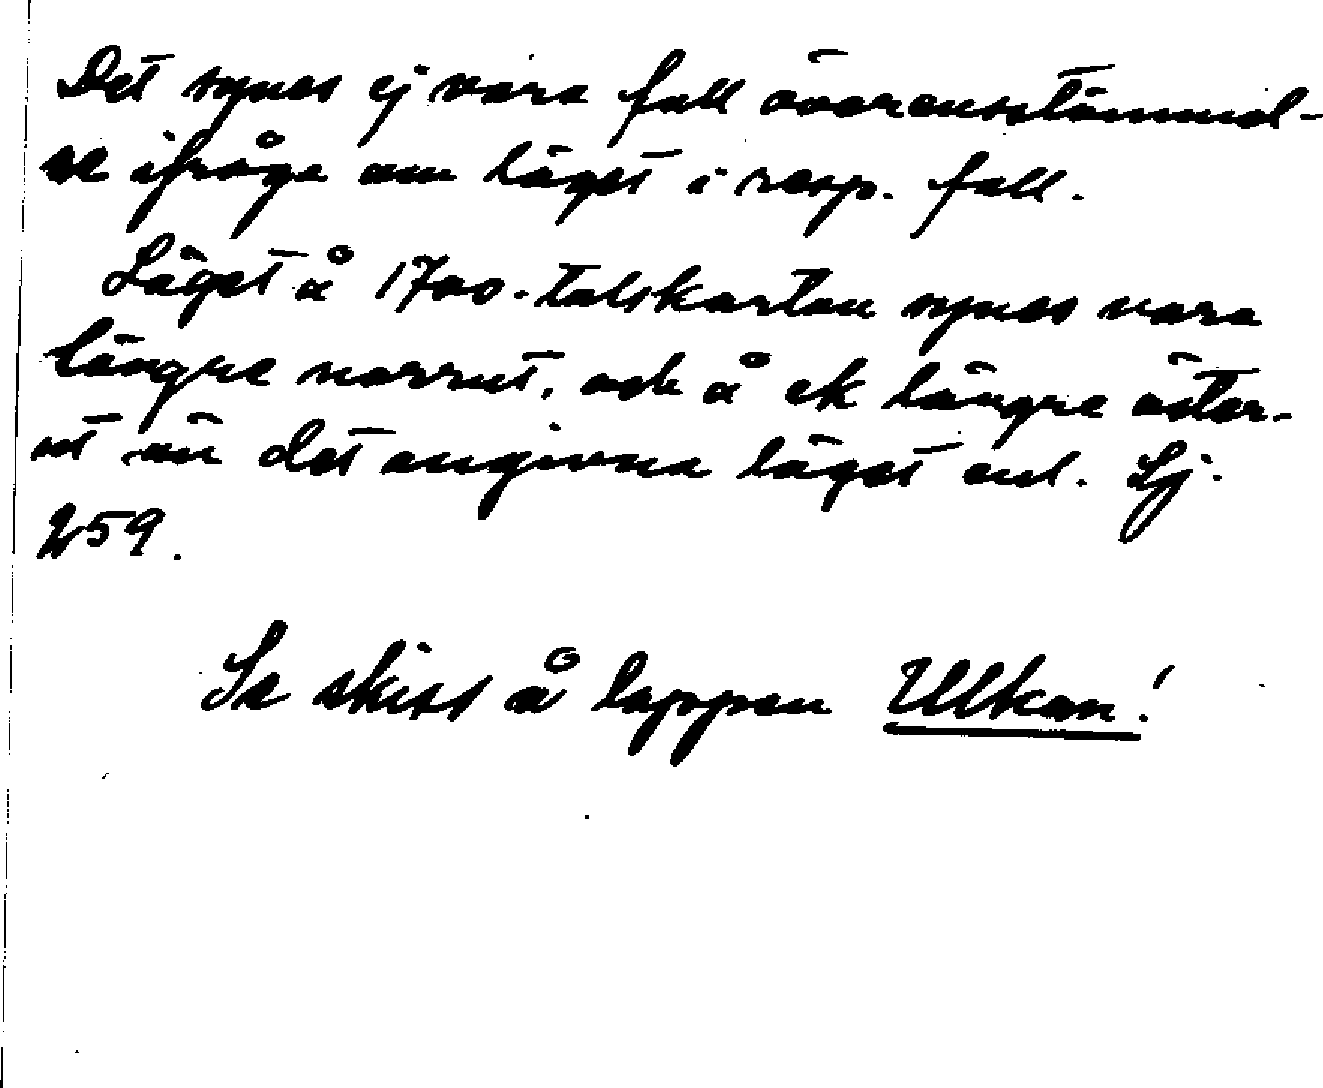 Det synes ej vara full överensstämmel-
se ifråga om läget i resp. fall.
Läget å 1700-talskartan synes vara
längre norrut, och å ek längre öster-
ut än det angivna läget enl. Lj.
259.
Se skiss å lappen Ulkan!